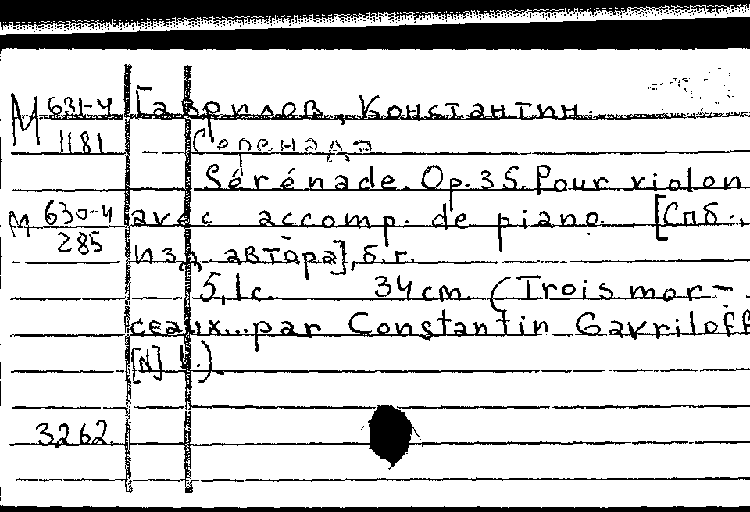 М 631-4 Гаврилов, Константин.
1181 Серенада
Sérénade. Op. 35. Pour violon
М 630-4 avec accomp. de piano. [Спб.,
285
изд. автора], б.г.
5, 1 с. 34 см. (Trois mor-
ceaux... par Constantin Gavriloff
[N] 1.)
3262